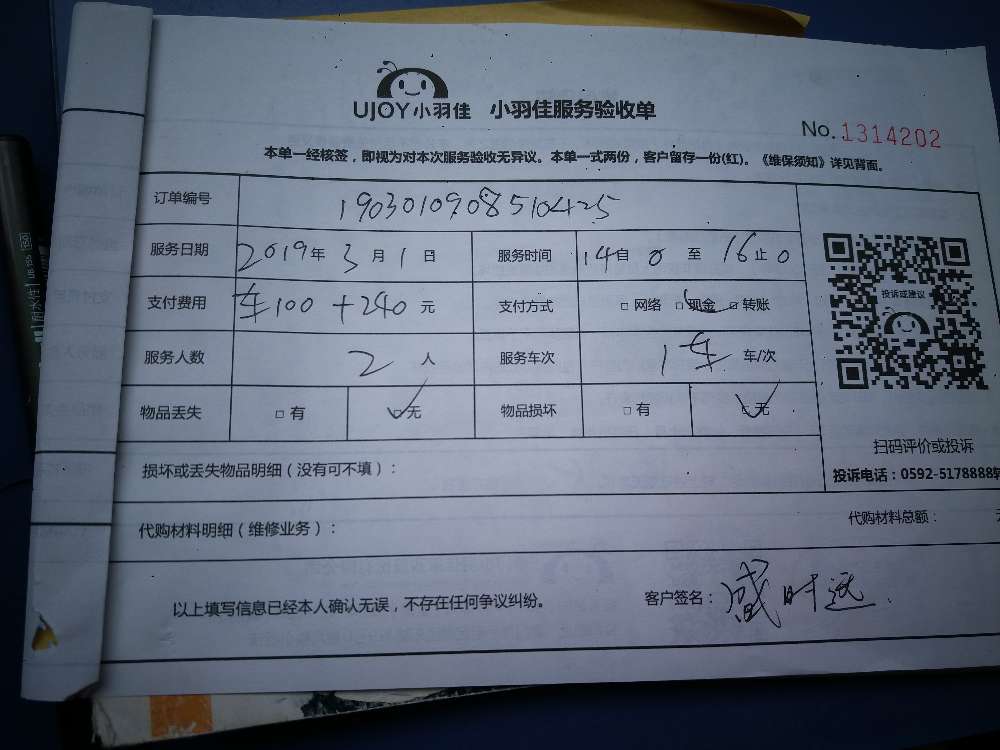 UJOY小羽佳 小羽佳服务验收单
No.1314202
本单一经核签，即视为对本次服务验收无异议。本单一式两份，客户留存一份(红)。《维保须知》详见背面。
订单编号 1903010908510425
服务日期 2019年 3月 1日 服务时间 14自 0 至 16止 0
支付费用 车100+240 元 支付方式 □网络 □现金 □转账
服务人数 2 人 服务车次 1车 车/次
物品丢失 □有 □无 物品损坏 □有 □无
投诉或建议
扫码评价或投诉
投诉电话：0592-5178888转
损坏或丢失物品明细（没有可不填）：
代购材料明细（维修业务）： 代购材料总额：
以上填写信息已经本人确认无误，不存在任何争议纠纷。 客户签名：盛时远